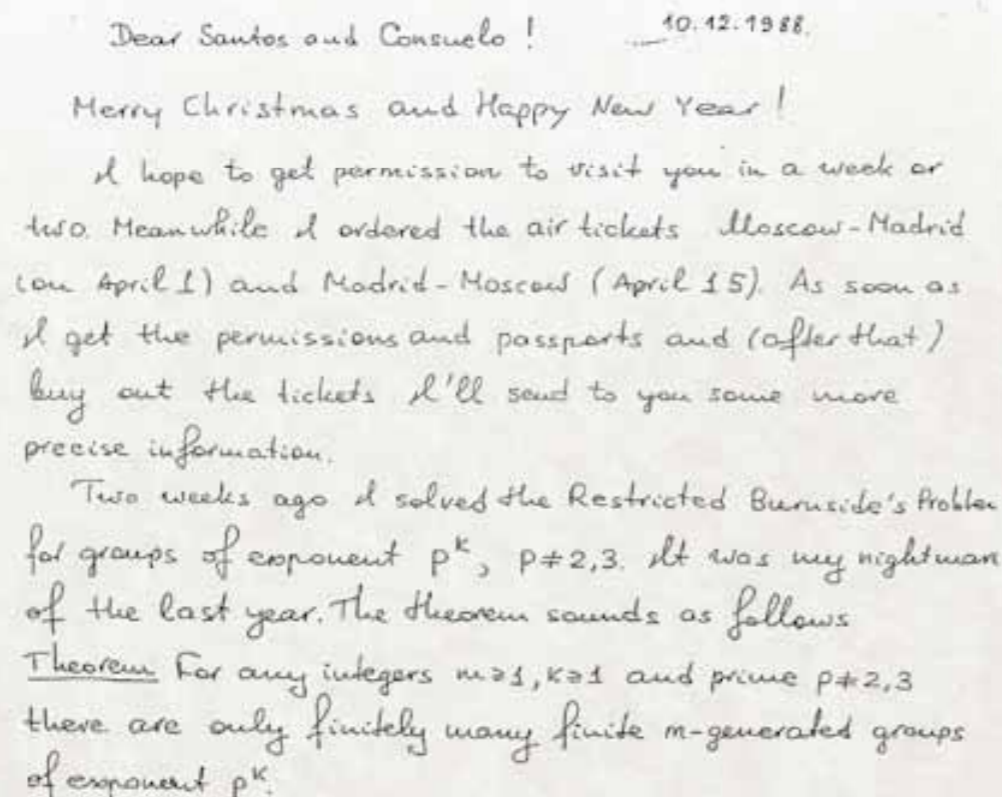 Dear Santos and Consuelo! 10.12.1988.
Merry Christmas and Happy New Year!
I hope to get permission to visit you in a week or
two. Meanwhile I ordered the air tickets Moscow-Madrid
(on April 1) and Madrid-Moscow (April 15). As soon as
I get the permissions and passports and (after that)
buy out the tickets I'll send to you some more
precise information.
Two weeks ago I solved the Restricted Burnside's Problem
for groups of exponent p^k, p≠2,3. It was my nightmare
of the last year. The theorem sounds as follows
Theorem For any integers m≥1, k≥1 and prime p≠2,3
there are only finitely many finite m-generated groups
of exponent p^k.